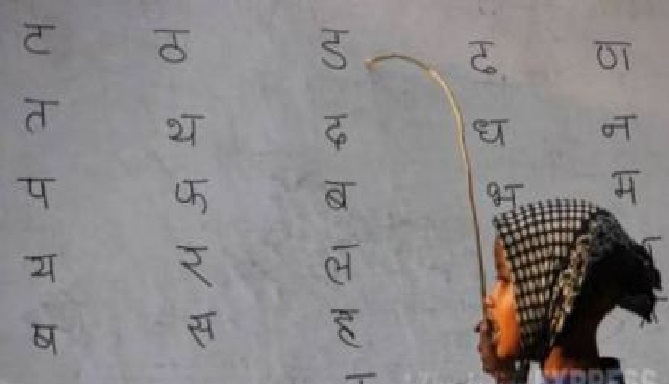 ट ठ ड ढ ण
त थ द ध न
प फ ब भ म
य र ल
ष स ह
EXPRESS